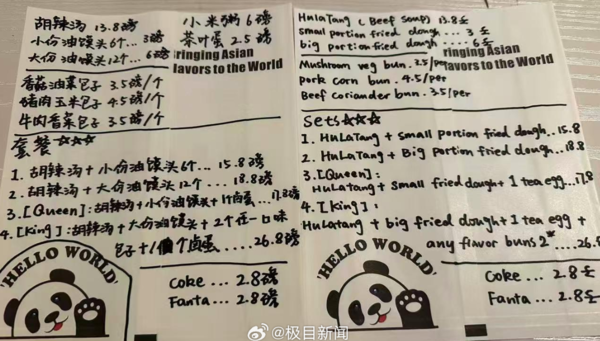 胡辣汤 13.8磅
小份油馍头6个...3磅
大份油馍头12个...6磅
小米粥 6磅
茶叶蛋 2.5磅
ringing Asian
lavors to the World
香菇油菜包子 3.5磅/个
猪肉玉米包子 4.5磅/个
牛肉香菜包子 3.5磅/个
套餐☆☆☆
1. 胡辣汤+小份油馍头6个...15.8磅
2. 胡辣汤+大份油馍头12个...18.8磅
3.[Queen]:胡辣汤+小份油馍头+1个卤蛋...17.8磅
4.[King]:胡辣汤+大份油馍头+2个任一口味
包子+1個个卤蛋...26.8磅
'HELLO WORLD'
Coke ... 2.8磅
Fanta ... 2.8磅
HuLaTang ( Beef Soup) 13.8£
small portion fried dough ... 3 £
big portion fried dough .... 6 £
ringing Asian
lavors to the World
Mushroom veg bun. 3.5/per
pork corn bun. 4.5/per
Beef Coriander bun. 3.5/per
Sets☆☆☆
1. HuLaTang + small portion fried dough..15.8
2. HuLaTang + Big portion fried dough...18.8
3.[Queen]:
HuLaTang + small fried dough + 1 tea egg...17.8
4.[King]:
Hulatang + big fried dough + 1 tea egg +
any flavor buns 2*...26.8
'HELLO WORLD'
Coke ... 2.8£
Fanta ... 2.8£
@极目新闻